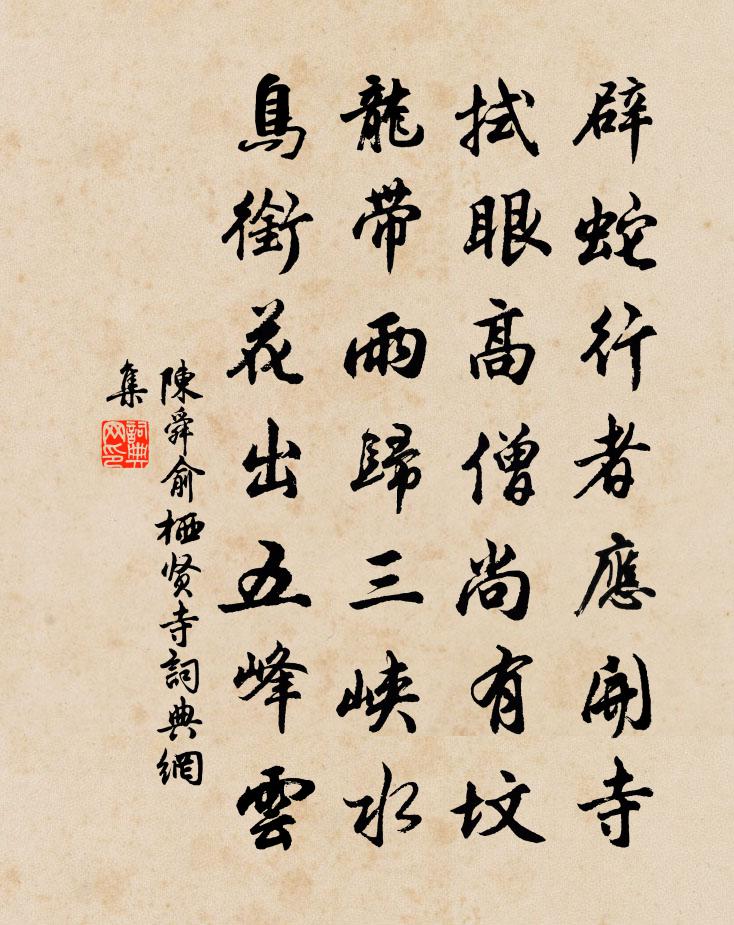 辟蛇行者應開寺
拭眼高僧尚有墳
龍帶雨歸三峽水
鳥銜花出五峰雲
陳舜俞栖賢寺詞典網
集
詞典
网印